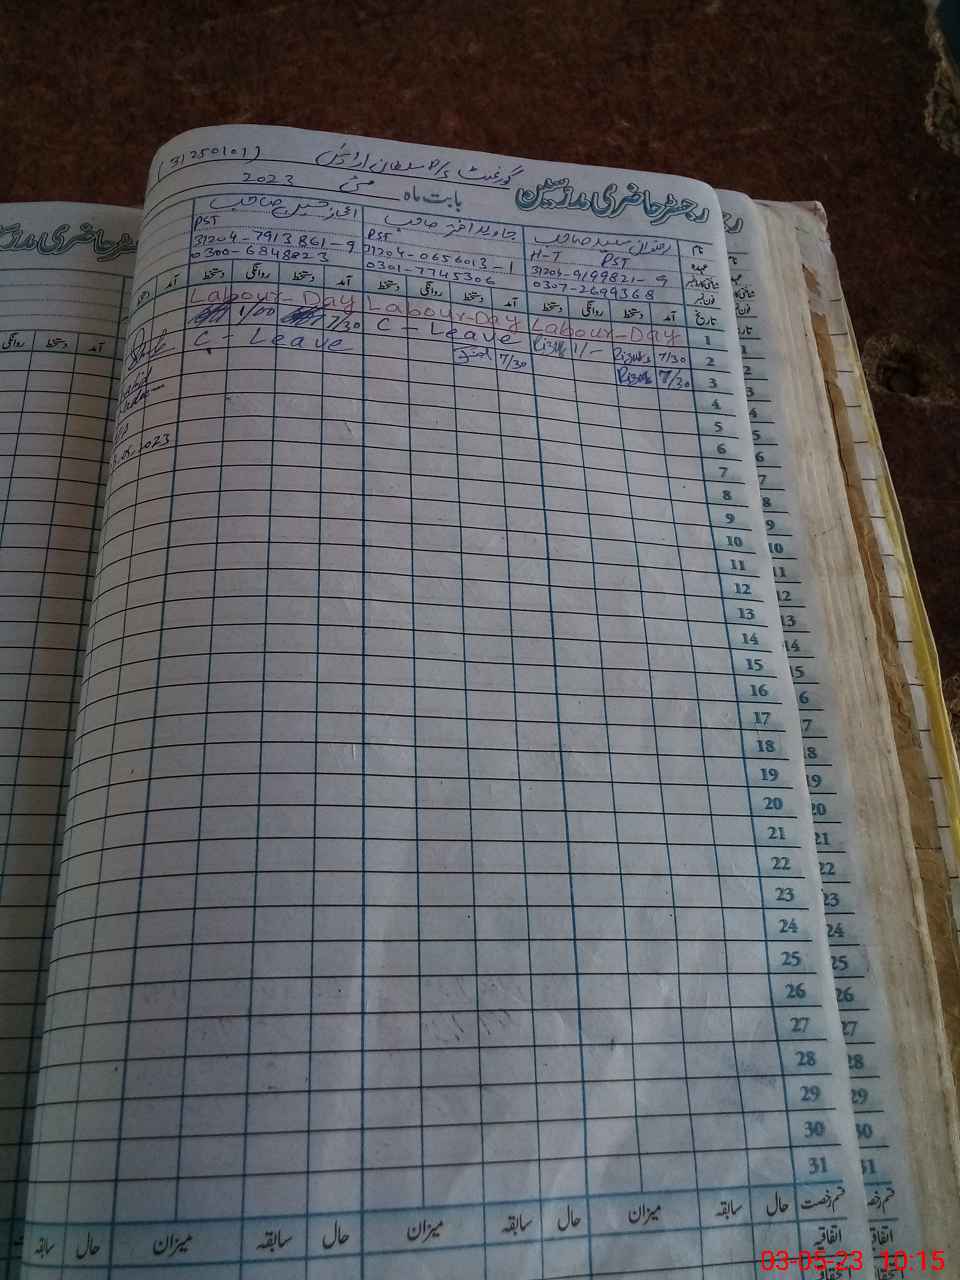 (31250101) گورنمنٹ
رجسٹر حاضری مدرسین بابت ماہ مئی 2023
نام جاوید اختر صاحب اعجاز حسین صاحب
عہدہ H-T PST PST PST
31204-9199821-9 31204-0656013-1 31204-7913861-9
فون نمبر 0307-2699368 0301-7745306 0300-6848823
تاریخ آمد دستخط روانگی دستخط آمد دستخط روانگی دستخط آمد دستخط روانگی دستخط آمد
1 Labour-Day Labour-Day Labour-Day
2 7/30 1/- C - Leave 7/30 1/00
3 7/30 7/30 C - Leave
4
5
6
7
8
9
10
11
12
13
14
15
16
17
18
19
20
21
22
23
24
25
26
27
28
29
30
31
قسم رخصت حال سابقہ میزان حال سابقہ میزان حال سابقہ میزان حال سابقہ
اتفاقیہ
رجسٹر حاضری
آمد دستخط روانگی
03-05-23 10:15